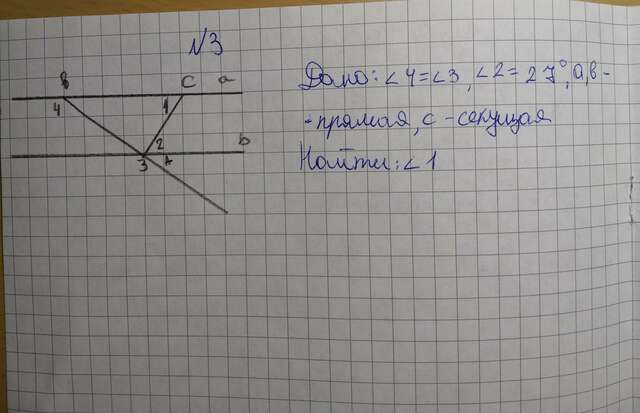 №3
B C a
1
4
2
b
3 A
Дано: ∠4=∠3, ∠2=27°, a,b-
-прямая, с-секущая
Найти: ∠1